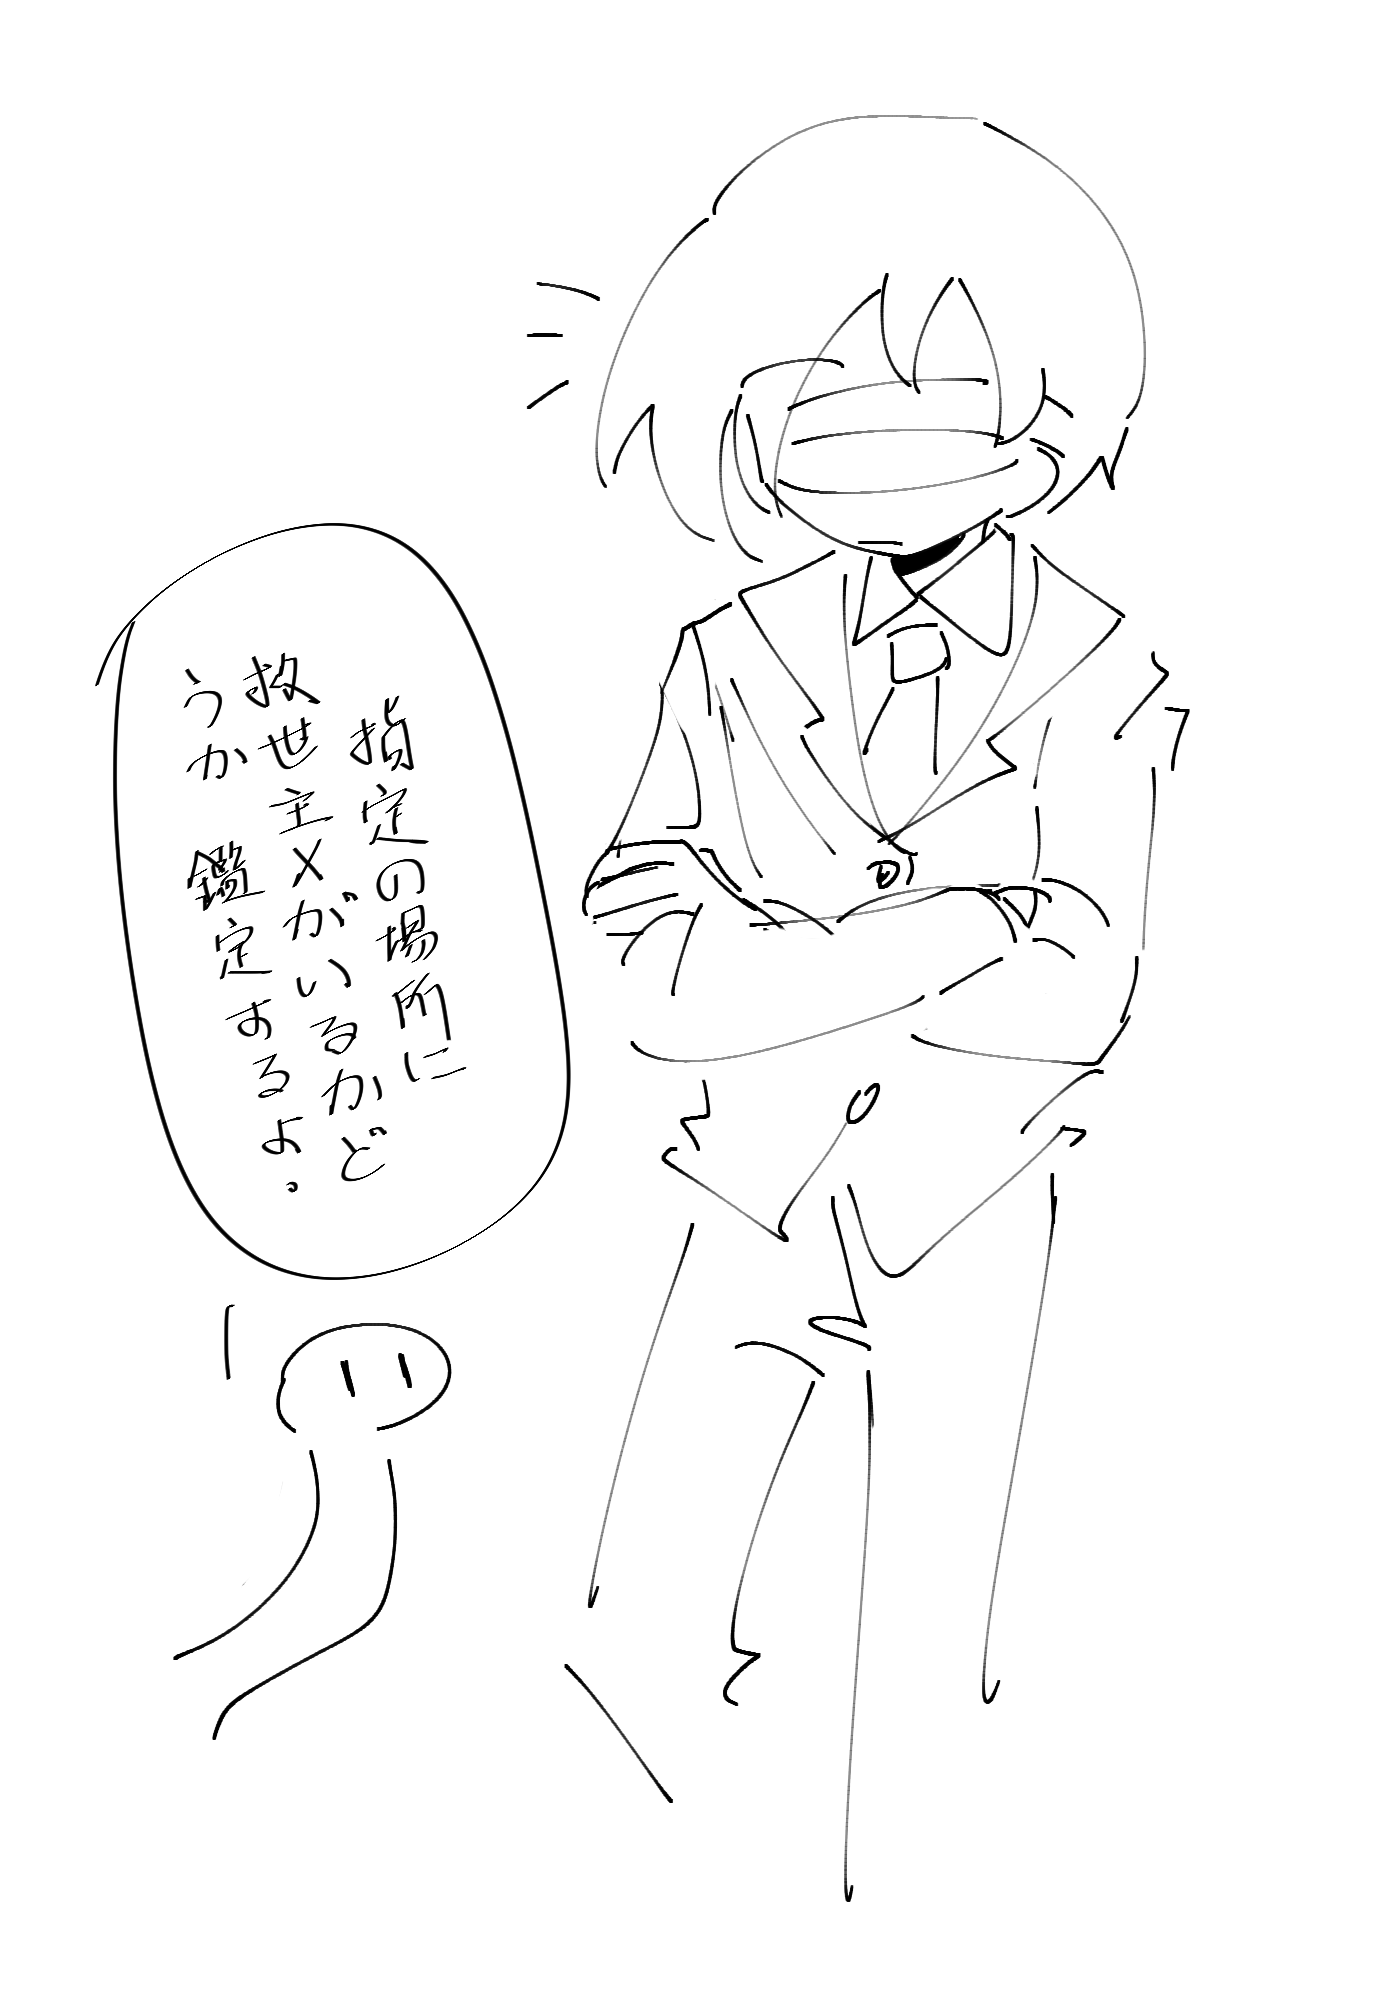 指定の場所に
救世主メがいるかど
うか　鑑定するよ。